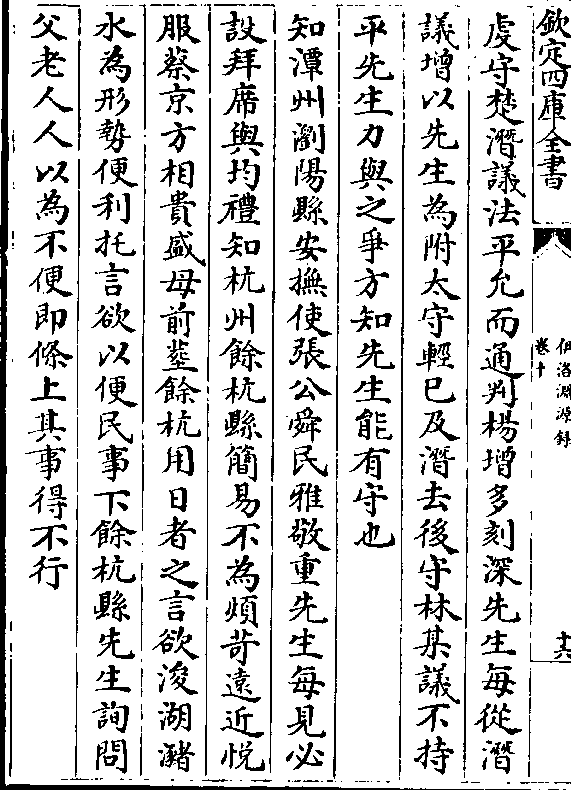 欽定四庫全書
伊洛淵源錄
卷十
十六
虔守楚潛議法平允而通判楊增多刻深先生每從潛
議增以先生為附太守輕已及潛去後守林某議不持
平先生力與之爭方知先生能有守也
知潭州瀏陽縣安撫使張公舜民雅敬重先生每見必
設拜席與均禮知杭州餘杭縣簡易不為煩苛遠近悅
服蔡京方相貴盛母前塟餘杭用日者之言欲浚湖瀦
水為形勢便利托言欲以便民事下餘杭縣先生詢問
父老人人以為不便即條上其事得不行